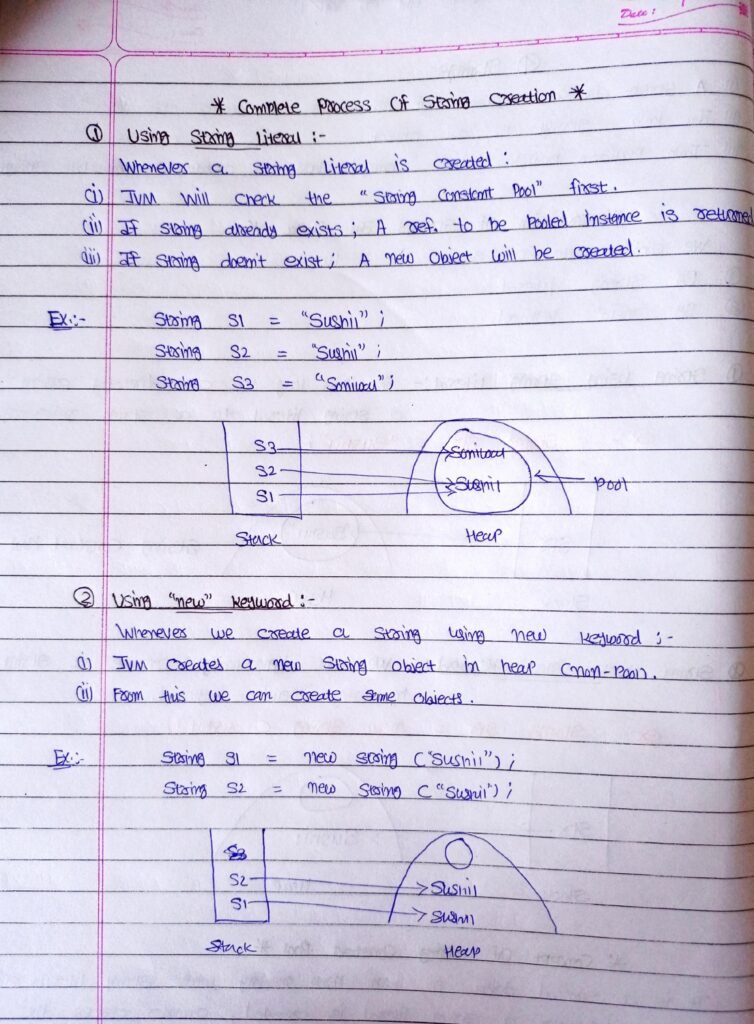 Date :
* Complete Process Of String Creation *
① Using String Literal :-
Whenever a string literal is created :
(i) JVM will check the "String Constant Pool" first.
(ii) If string already exists ; A ref. to be Pooled Instance is returned
(iii) If string doesn't exist ; A new Object will be created.
Ex.:- String S1 = "Sushil" ;
String S2 = "Sushil" ;
String S3 = "Soniwal" ;
S3 Soniwal
S2 Sushil Pool
S1
Stack Heap
② Using "new" keyword :-
Whenever we create a string using new keyword :-
(i) JVM creates a new String Object in heap (non-Pool).
(ii) From this we can create same Objects.
Ex.:- String S1 = new String ("Sushil") ;
String S2 = new String ("Sushil") ;
S2 Sushil
S1 Sushil
Stack Heap